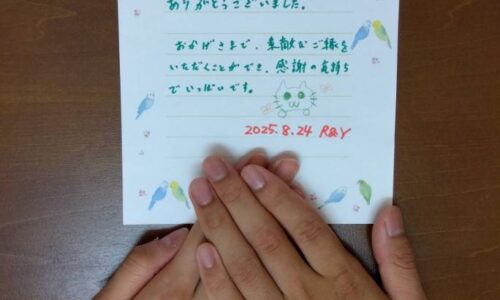 ありがとうございました。
おかげさまで、素敵なご縁を
いただくことができ、感謝の気持ち
でいっぱいです。
2025.8.24 R&Y